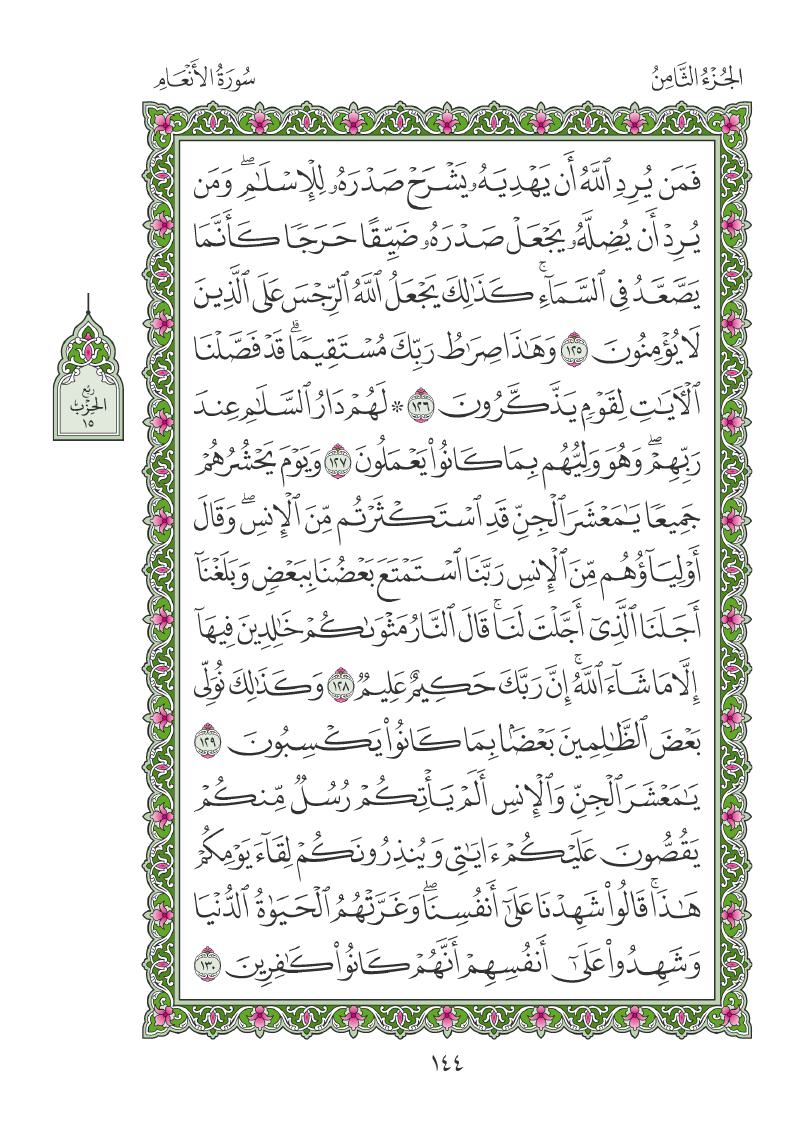 الجُزْءُ الثَّامِنُ
سُورَةُ الأَنْعَامِ
فَمَن يُرِدِ ٱللَّهُ أَن يَهْدِيَهُۥ يَشْرَحْ صَدْرَهُۥ لِلْإِسْلَٰمِۖ وَمَن
يُرِدْ أَن يُضِلَّهُۥ يَجْعَلْ صَدْرَهُۥ ضَيِّقًا حَرَجًا كَأَنَّمَا
يَصَّعَّدُ فِى ٱلسَّمَآءِۚ كَذَٰلِكَ يَجْعَلُ ٱللَّهُ ٱلرِّجْسَ عَلَى ٱلَّذِينَ
لَا يُؤْمِنُونَ ١٢٥ وَهَٰذَا صِرَٰطُ رَبِّكَ مُسْتَقِيمًاۗ قَدْ فَصَّلْنَا
ٱلْءَايَٰتِ لِقَوْمٍ يَذَّكَّرُونَ ١٢٦ * لَهُمْ دَارُ ٱلسَّلَٰمِ عِندَ
رَبِّهِمْۖ وَهُوَ وَلِيُّهُم بِمَا كَانُوا۟ يَعْمَلُونَ ١٢٧ وَيَوْمَ يَحْشُرُهُمْ
جَمِيعًا يَٰمَعْشَرَ ٱلْجِنِّ قَدِ ٱسْتَكْثَرْتُم مِّنَ ٱلْإِنسِۖ وَقَالَ
أَوْلِيَآؤُهُم مِّنَ ٱلْإِنسِ رَبَّنَا ٱسْتَمْتَعَ بَعْضُنَا بِبَعْضٍ وَبَلَغْنَآ
أَجَلَنَا ٱلَّذِىٓ أَجَّلْتَ لَنَاۚ قَالَ ٱلنَّارُ مَثْوَىٰكُمْ خَٰلِدِينَ فِيهَآ
إِلَّا مَا شَآءَ ٱللَّهُۚ إِنَّ رَبَّكَ حَكِيمٌ عَلِيمٌ ١٢٨ وَكَذَٰلِكَ نُوَلِّى
بَعْضَ ٱلظَّٰلِمِينَ بَعْضًۢا بِمَا كَانُوا۟ يَكْسِبُونَ ١٢٩
يَٰمَعْشَرَ ٱلْجِنِّ وَٱلْإِنسِ أَلَمْ يَأْتِكُمْ رُسُلٌ مِّنكُمْ
يَقُصُّونَ عَلَيْكُمْ ءَايَٰتِى وَيُنذِرُونَكُمْ لِقَآءَ يَوْمِكُمْ
هَٰذَاۚ قَالُوا۟ شَهِدْنَا عَلَىٰٓ أَنفُسِنَاۖ وَغَرَّتْهُمُ ٱلْحَيَوٰةُ ٱلدُّنْيَا
وَشَهِدُوا۟ عَلَىٰٓ أَنفُسِهِمْ أَنَّهُمْ كَانُوا۟ كَٰفِرِينَ ١٣٠
رُبْعُ
الحِزْبِ
١٥
١٤٤